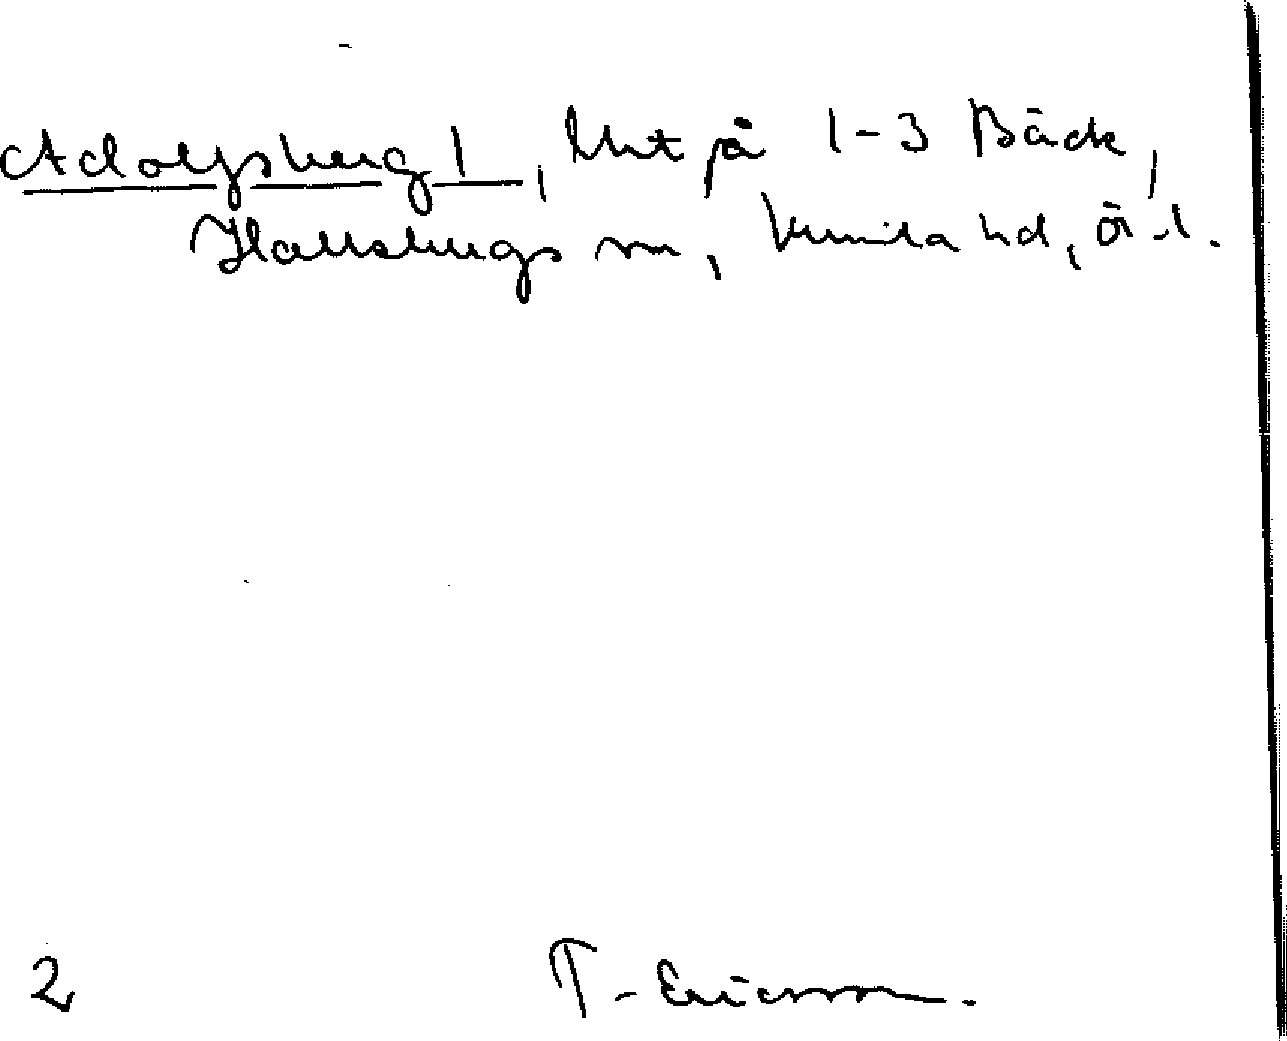 Adolfsberg 1, lht på 1-3 Bäck,
Hallsbergs sn, Kumla hd, Ör.l.
2 T-Ericsson.